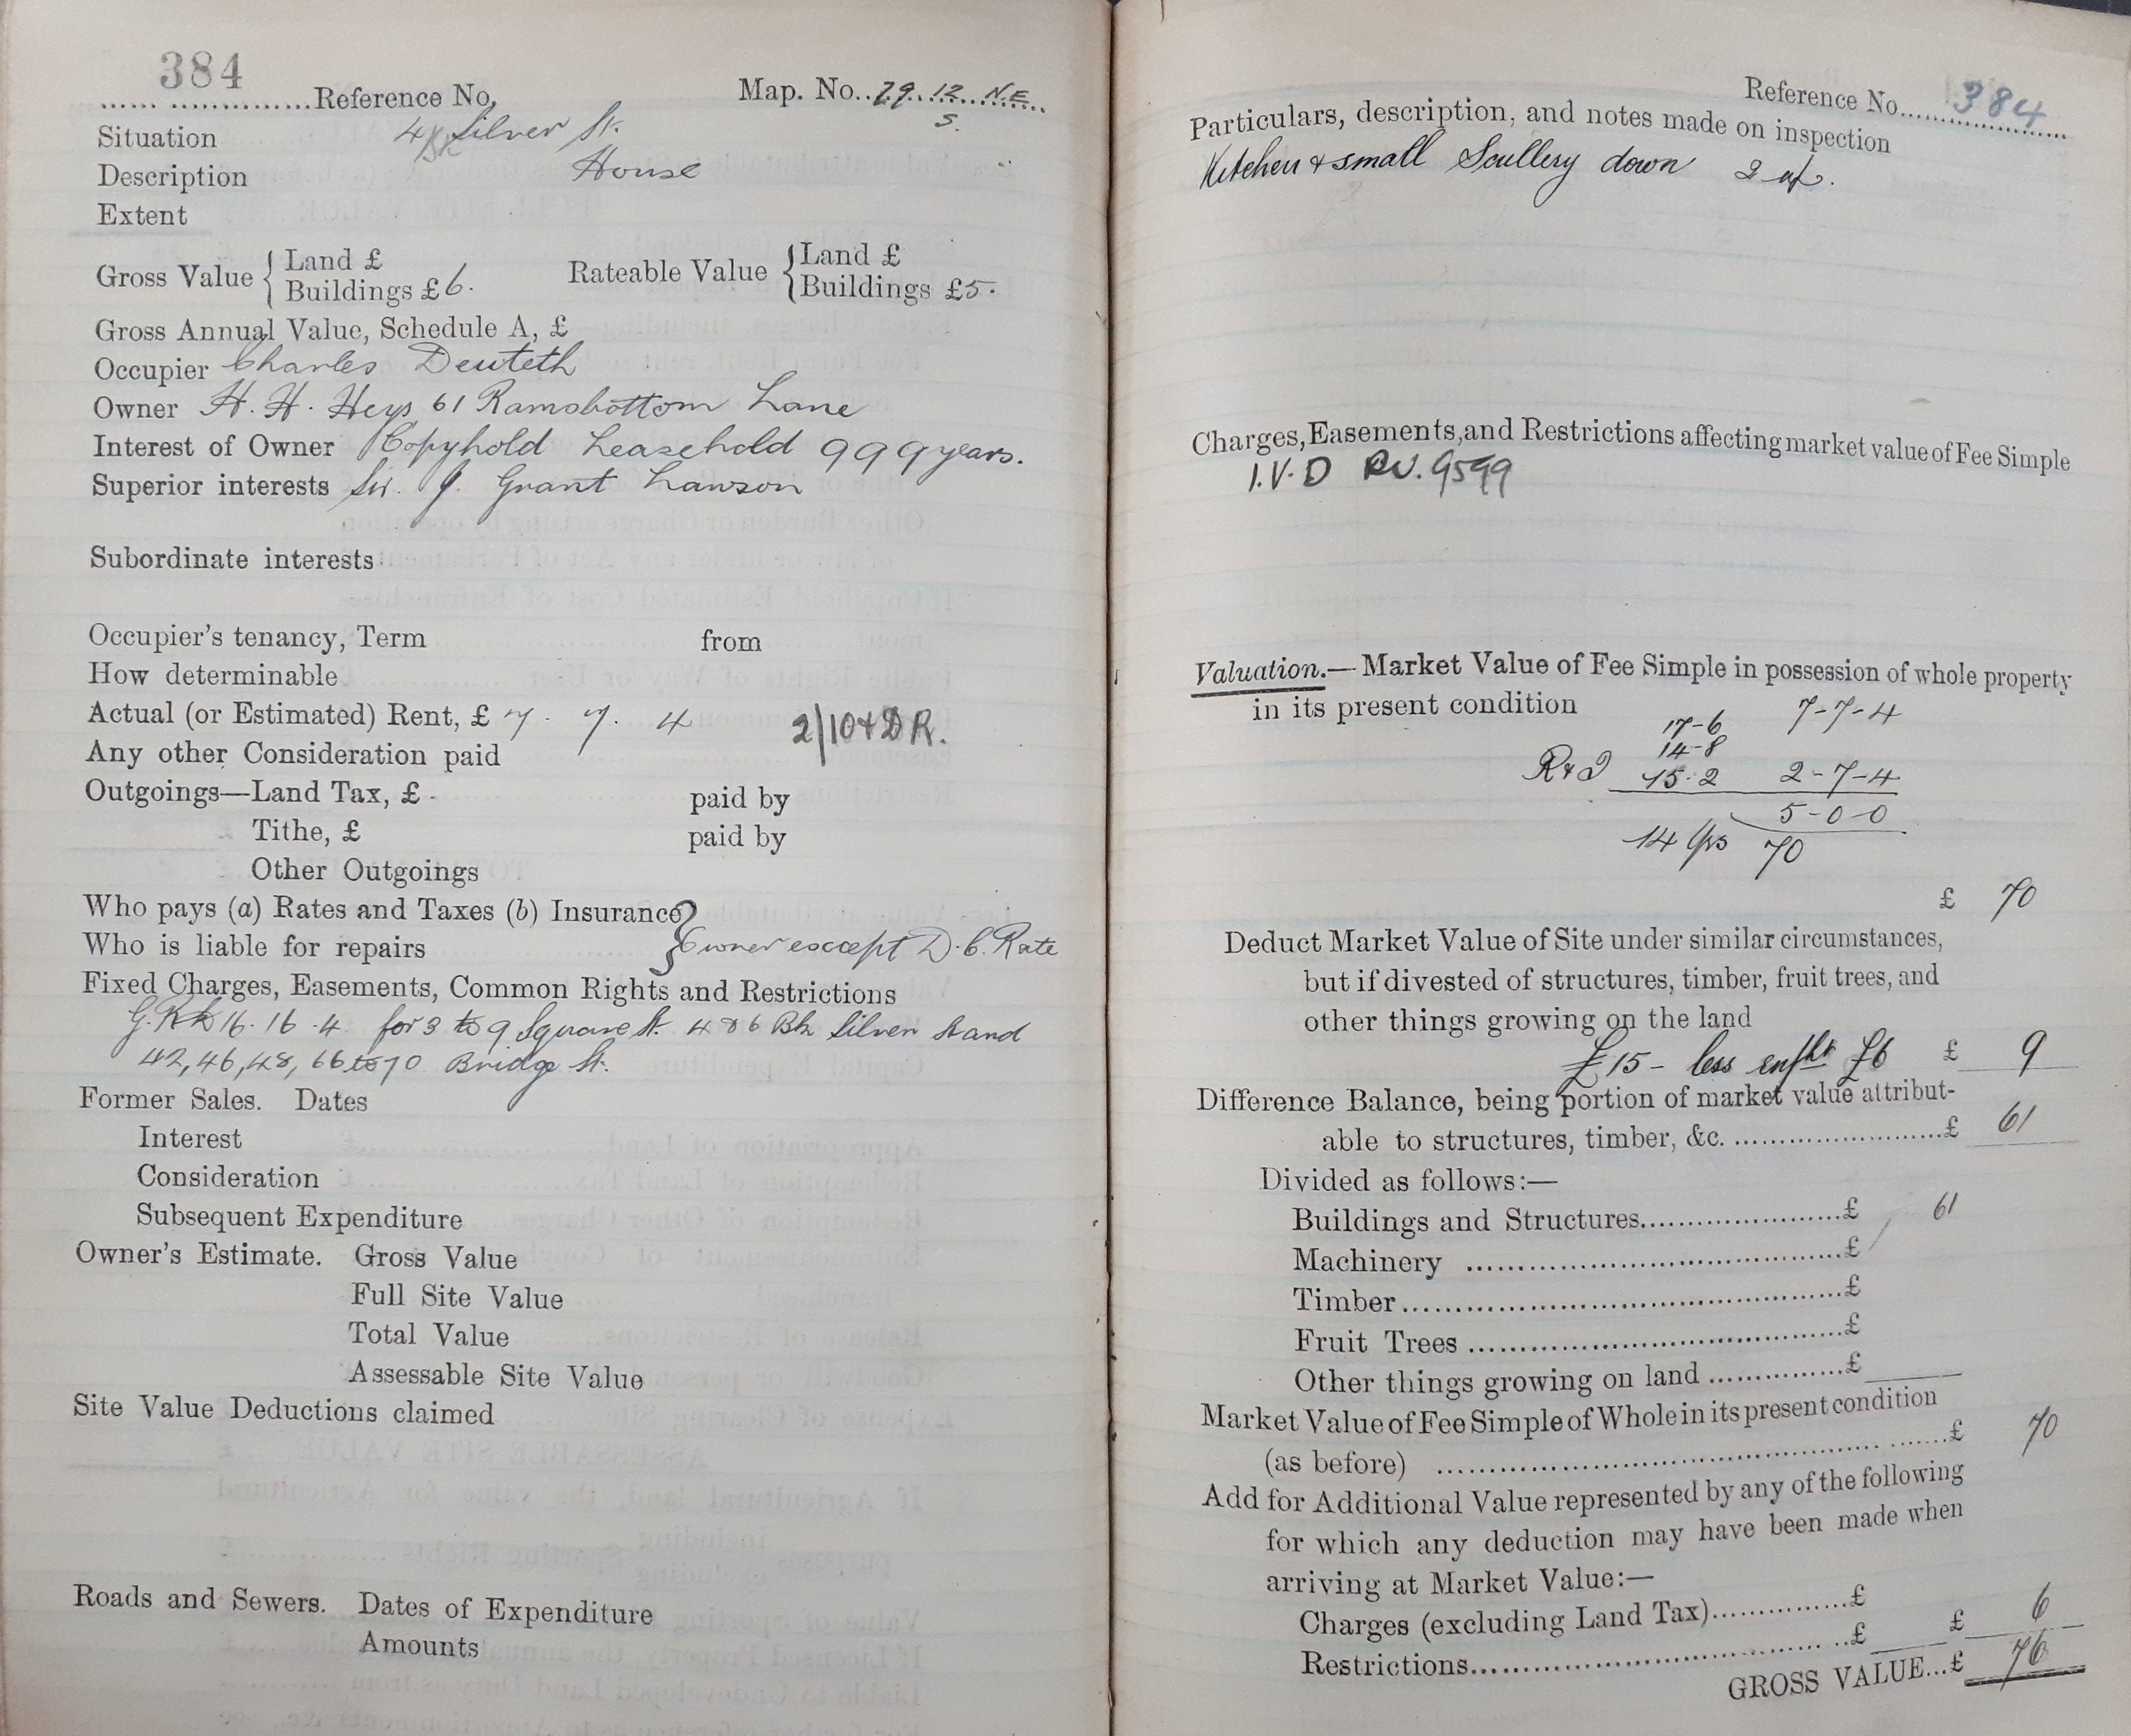 384
...... ..............Reference No. Map. No..29.12.N.E.
S.
Situation 4 Bk Silver St.
Description House
Extent
Gross Value { Land £ Rateable Value { Land £
Buildings £6. Buildings £5.
Gross Annual Value, Schedule A, £
Occupier Charles Deuteth
Owner H. H. Heys 61 Ramsbottom Lane
Interest of Owner Copyhold Leasehold 999 years.
Superior interests Sir. J. Grant Lawson
Subordinate interests
Occupier's tenancy, Term from
How determinable
Actual (or Estimated) Rent, £ 7. 7. 4 2/10 + D R.
Any other Consideration paid
Outgoings—Land Tax, £ - paid by
Tithe, £ paid by
Other Outgoings
Who pays (a) Rates and Taxes (b) Insurance }
Who is liable for repairs } Owner except D.C. Rate
Fixed Charges, Easements, Common Rights and Restrictions
G.R. 16.16.4 for 3 to 9 Square St. 4 & 6 Bk Silver St and
42, 46, 48, 66 to 70 Bridge St.
Former Sales. Dates
Interest
Consideration
Subsequent Expenditure
Owner's Estimate. Gross Value
Full Site Value
Total Value
Assessable Site Value
Site Value Deductions claimed
Roads and Sewers. Dates of Expenditure
Amounts
Reference No....384......
Particulars, description, and notes made on inspection
Kitchen & small Scullery down 2 up.
Charges, Easements, and Restrictions affecting market value of Fee Simple
I.V.D RV. 9599
Valuation.— Market Value of Fee Simple in possession of whole property
in its present condition
17-6 7-7-4
14-8
R & I 15-2 2-7-4
5-0-0
14 Yrs 70
£ 70
Deduct Market Value of Site under similar circumstances,
but if divested of structures, timber, fruit trees, and
other things growing on the land
£15 - less enfht £6 £ 9
Difference Balance, being portion of market value attribut-
able to structures, timber, &c. ........................£ 61
Divided as follows:—
Buildings and Structures........................£ 61
Machinery ........................£
Timber........................£
Fruit Trees ........................£
Other things growing on land ...............£
Market Value of Fee Simple of Whole in its present condition
(as before) ........................£ 70
Add for Additional Value represented by any of the following
for which any deduction may have been made when
arriving at Market Value:—
Charges (excluding Land Tax)...............£
Restrictions........................£ £ 6
GROSS VALUE...£ 76